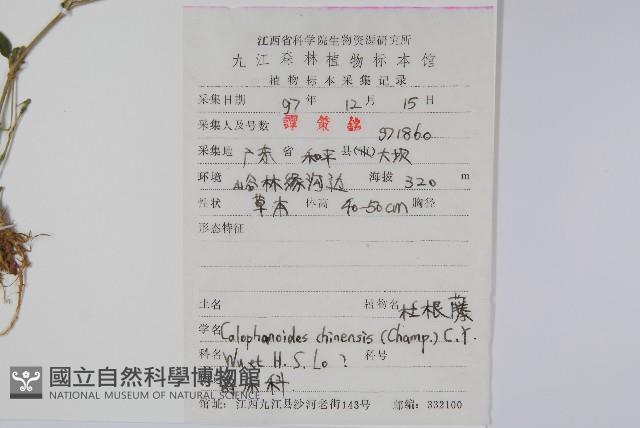 江西省科学院生物资源研究所
九江森林植物标本馆
植物标本采集记录
采集日期 97 年 12 月 15 日
采集人及号数 譚策銘 971860
采集地 广东 省 和平 县(市) 大坝
环境 山谷林缘沟边 海拔 320 m
性状 草本 体高 40-50cm 胸径
形态特征
土名 植物名 杜根藤
学名 Calophanoides chinensis (Champ.) C.Y.
科名 Wu et H.S. Lo ? 科号
爵床科
國立自然科學博物館
NATIONAL MUSEUM OF NATURAL SCIENCE
馆址:江西九江县沙河老街143号 邮编:332100